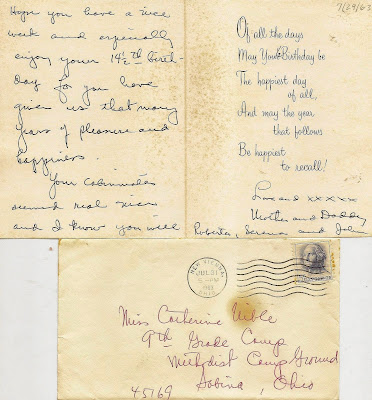 Hope you have a nice
week and especially
enjoy your 14½th birth-
day for you have
given us that many
years of pleasure and
happiness.
Your cabinmates
seemed real nice
and I know you will
7/29/63
Of all the days
May Your Birthday be
The happiest day
of all,
And may the year
that follows
Be happiest
to recall!
Love and xxxxx
Mother and Daddy
Roberta, and
NEW VIENNA
JUL 31
PM
1963
OHIO
Miss Catherine Uible
9th Grade Camp
Methodist Camp Ground
Sabina, Ohio
45169